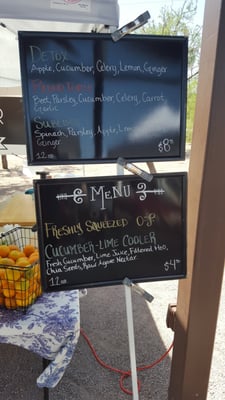 DETOX
Apple, Cucumber, Celery, Lemon, Ginger
Beet, Parsley, Cucumber, Celery, Carrot,
Garlic
Spinach, Parsley, Apple, Lemon
Ginger
12 $8
MENU
FRESHLY SQUEEZED O-J
CUCUMBER-LIME COOLER
Fresh Cucumber, Lime Juice, Filtered H2O,
Chia Seeds, Raw Agave Nectar
12 $4